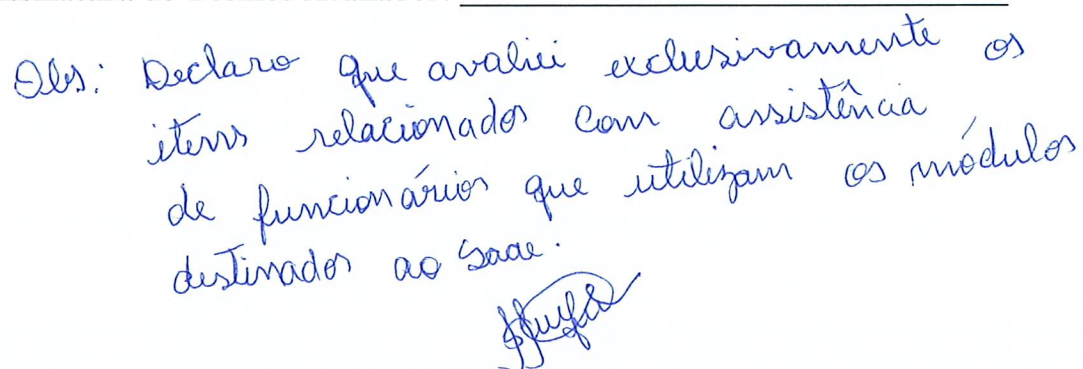 Obs: Declaro que avaliei exclusivamente os
itens relacionados com assistência
de funcionários que utilizam os módulos
destinados ao Saae.